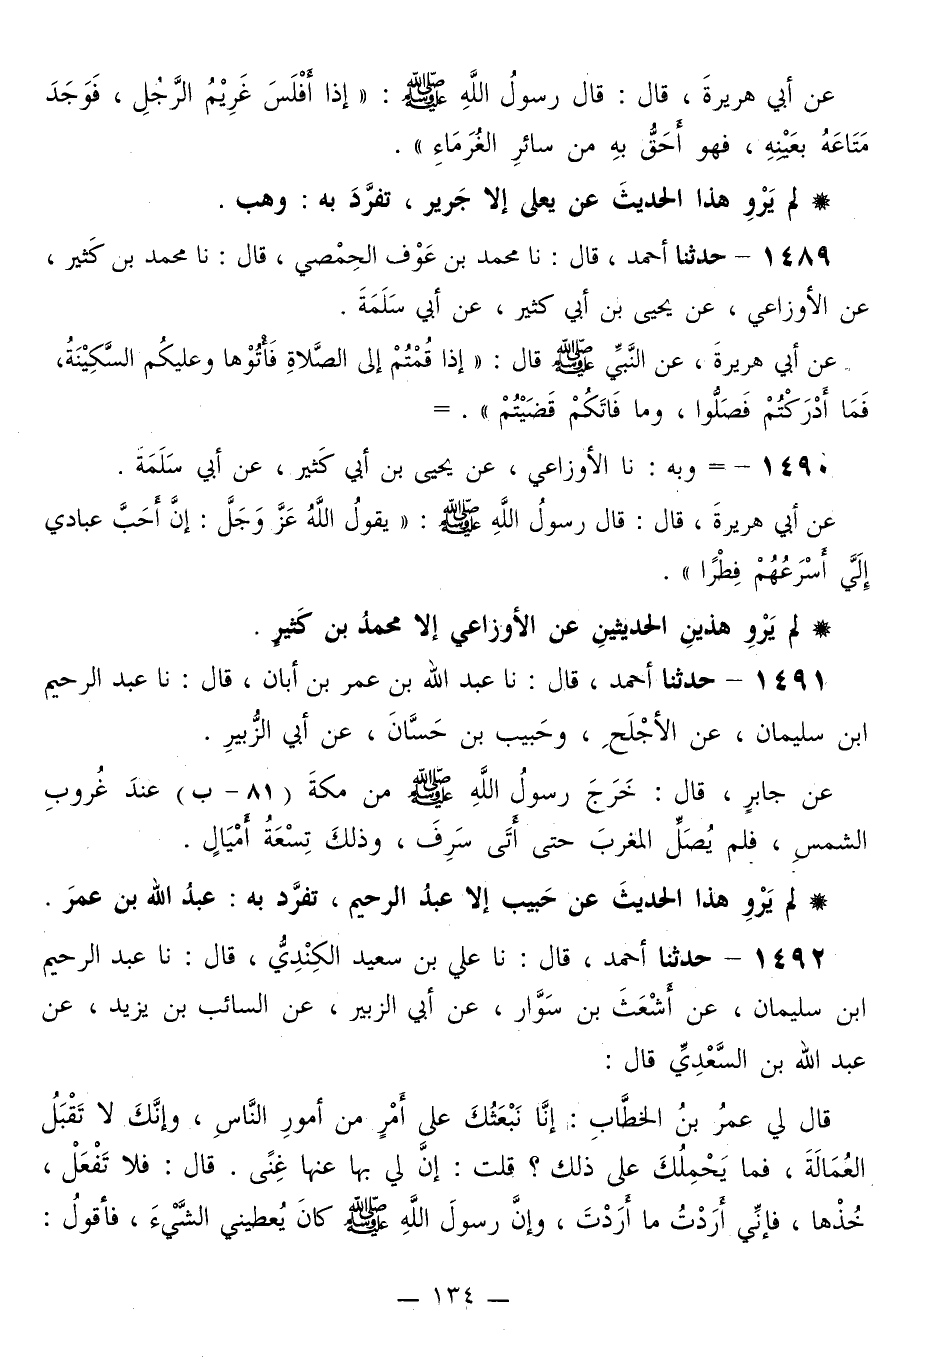 عن أبي هريرةَ ، قال : قال رسولُ اللَّهِ ﷺ : « إذا أَفْلَسَ غَرِيْمُ الرَّجُلِ ، فَوَجَدَ
مَتَاعَهُ بعَيْنِهِ ، فهو أَحَقُّ بهِ من سائرِ الغُرَمَاءِ » .
* لم يَرْوِ هذا الحديثَ عن يعلى إلا جَرير ، تفرَّدَ به : وهب .
١٤٨٩ - حدثنا أحمد ، قال : نا محمد بن عَوْف الحِمْصي ، قال : نا محمد بن كَثير ،
عن الأوزاعي ، عن يحيى بن أبي كثير ، عن أبي سَلَمَةَ .
عن أبي هريرةَ ، عن النَّبيِّ ﷺ قال : « إذا قُمْتُمْ إلى الصَّلاةِ فَأْتُوْها وعليكُم السَّكِيْنَةُ،
فَمَا أَدْرَكْتُمْ فَصَلُّوا ، وما فَاتَكُمْ قَضَيْتُمْ » . =
١٤٩٠ - = وبه : نا الأوزاعي ، عن يحيى بن أبي كَثير ، عن أبي سَلَمَةَ .
عن أبي هريرةَ ، قال : قال رسولُ اللَّهِ ﷺ : « يقولُ اللَّهُ عَزَّ وَجَلَّ : إنَّ أَحَبَّ عبادي
إلَيَّ أَسْرَعُهُمْ فِطْرًا » .
* لم يَرْوِ هذينِ الحديثينِ عن الأوزاعي إلا محمدُ بن كَثيرٍ .
١٤٩١ - حدثنا أحمد ، قال : نا عبد الله بن عمر بن أبان ، قال : نا عبد الرحيم
ابن سليمان ، عن الأجْلَحِ ، وحَبيب بن حَسَّانَ ، عن أبي الزُّبيرِ .
عن جابرٍ ، قال : خَرَجَ رسولُ اللَّهِ ﷺ من مكةَ ( ٨١ - ب ) عندَ غُروبِ
الشمسِ ، فلم يُصَلِّ المغربَ حتى أَتَى سَرِفَ ، وذلكَ تِسْعَةُ أَمْيَالٍ .
* لم يَرْوِ هذا الحديثَ عن حَبيب إلا عبدُ الرحيم ، تفرَّد به : عبدُ الله بن عمرَ .
١٤٩٢ - حدثنا أحمد ، قال : نا علي بن سعيد الكِنْدِيُّ ، قال : نا عبد الرحيم
ابن سليمان ، عن أَشْعَثَ بن سَوَّار ، عن أبي الزبير ، عن السائب بن يزيد ، عن
عبد الله بن السَّعْدِيِّ قال :
قال لي عمرُ بنُ الخطَّابِ : إنَّا نَبْعَثُكَ على أَمْرٍ من أمورِ النَّاسِ ، وإنَّكَ لا تَقْبَلُ
العُمَالَةَ ، فما يَحْمِلُكَ على ذلك ؟ قلت : إنَّ لي بها عنها غِنًى . قال : فلا تَفْعَلْ ،
خُذْها ، فإنِّي أَرَدْتُ ما أَرَدْتَ ، وإنَّ رسولَ اللَّهِ ﷺ كانَ يُعطيني الشَّيْءَ ، فأقولُ :
— ١٣٤ —